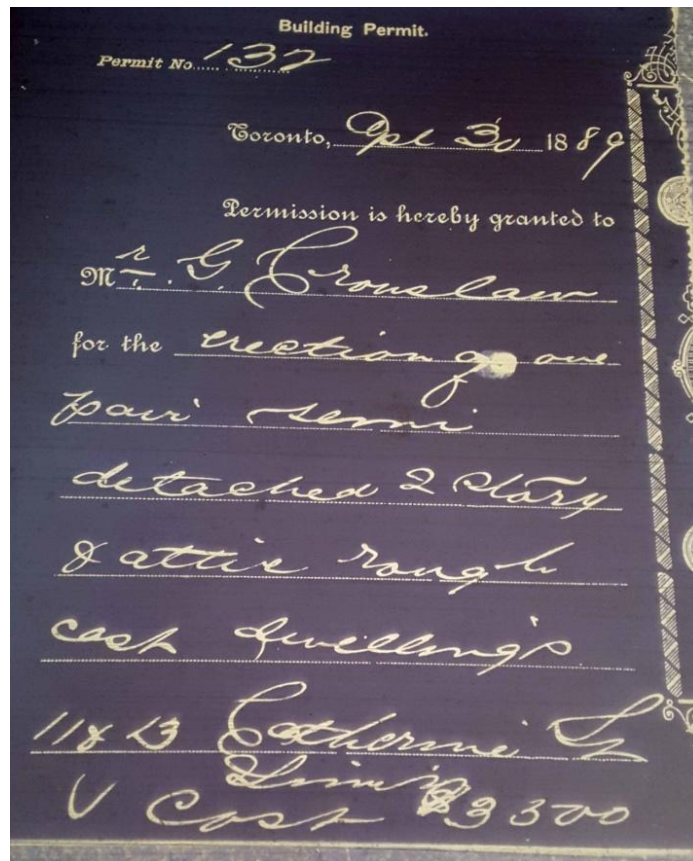 Building Permit.
Permit No. 132
Toronto, Apl 30 1889
Permission is hereby granted to
Mr. G Crouslaw
for the erection of one
pair semi
detached 2 story
& attic rough
cast dwellings
11 & 13 Catherine St
Cost $3500